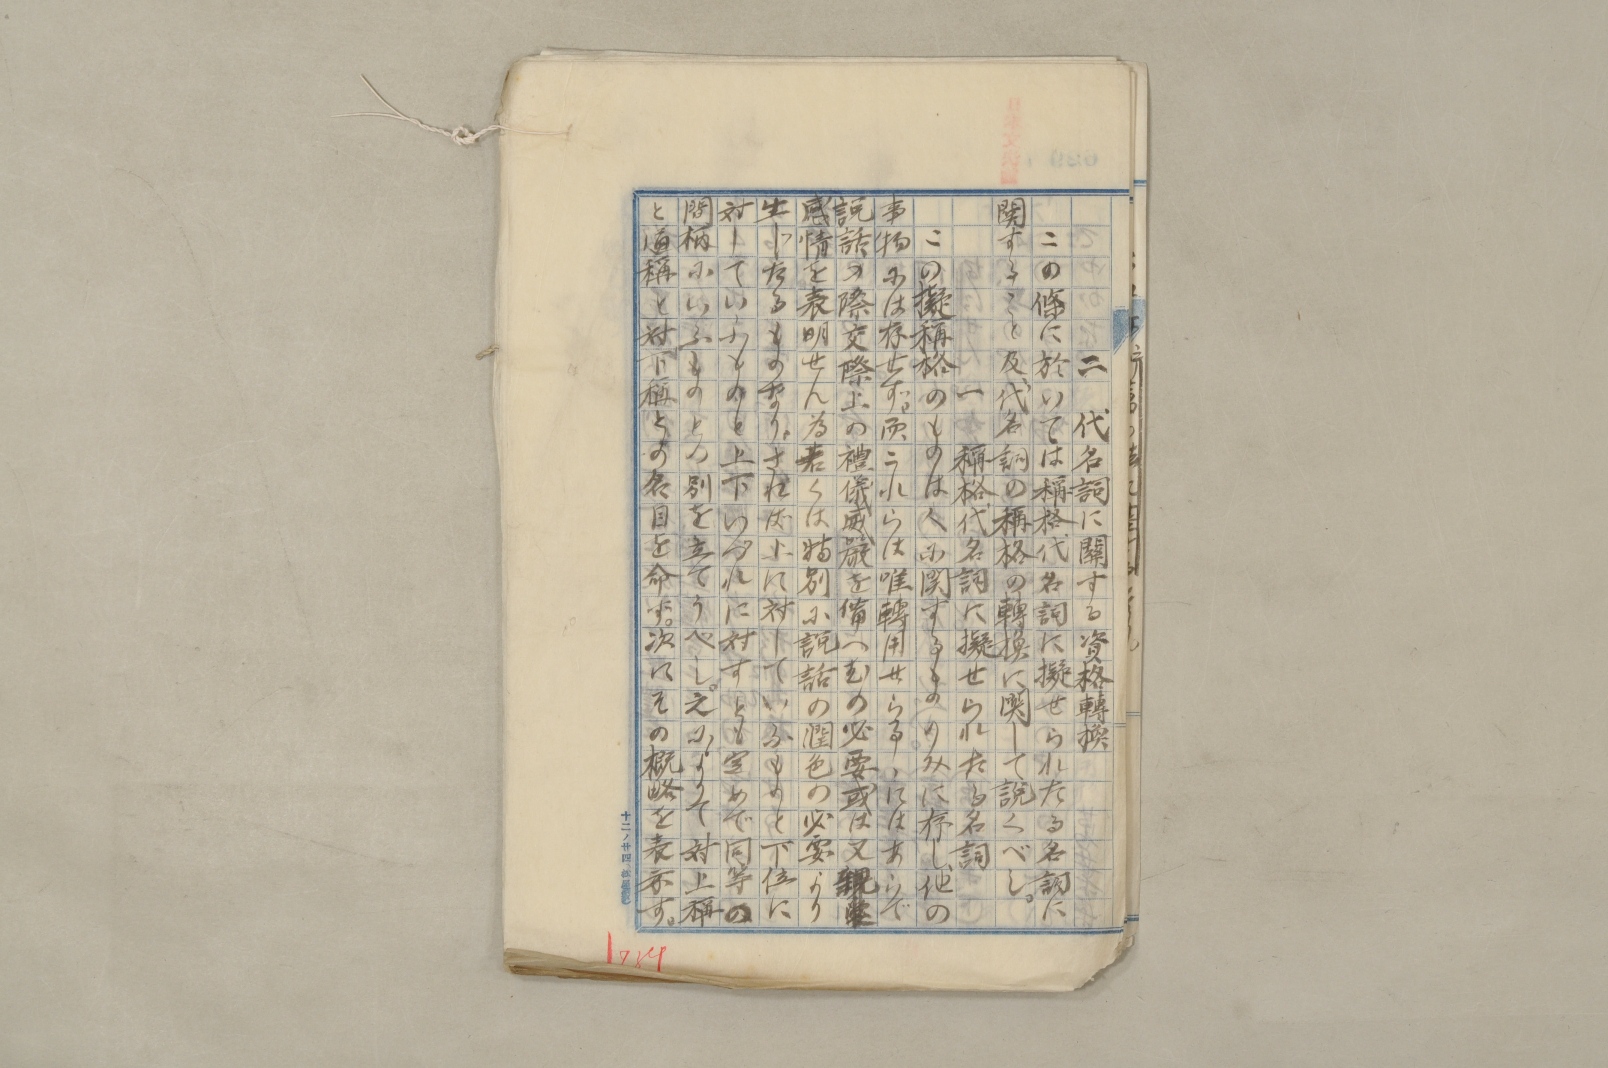 二 代名詞に關する資格轉換
この條に於いては稱格代名詞に擬せられたる名詞に
関すること及代名詞の稱格の轉換に関して説くべし。
一 稱格代名詞に擬せられたる名詞
この擬稱格のものは人に関するものゝみに存し、他の
事物には存せず。而これらは唯轉用せらるゝにはあらで
説話の際交際上の禮儀威嚴を備へむの必要或は又
感情を表明せん為若くは特別に説話の潤色の必要より
生じたるものなり。されば上に対していふものと下位に
対していふものと上下いづれに対すとも定めで同等の
間柄にいふものとの別を立てうべし。之によりて対上稱
と通稱と対下稱との名目を命ず。次にその概略を表示す。
十二ノ廿四
734